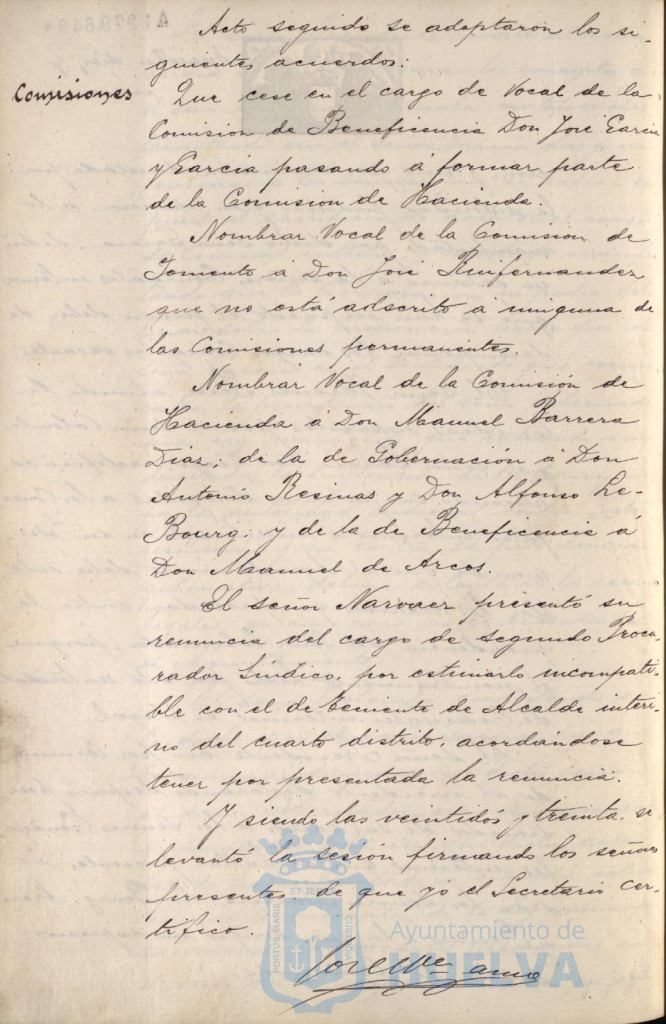 Acto seguido se adoptaron los si-
guientes acuerdos:
Comisiones
Que cese en el cargo de Vocal de la
Comision de Beneficencia Don José Garcia
y Garcia pasando á formar parte
de la Comision de Hacienda.
Nombrar Vocal de la Comision de
Fomento á Don José Ruifernandez
que no está adscrito á ninguna de
las Comisiones permanentes.
Nombrar Vocal de la Comisión de
Hacienda á Don Manuel Barrera
Diaz; de la de Gobernación á Don
Antonio Resinas y Don Alfonso Le-
Bourg: y de la de Beneficencia á
Don Manuel de Arcos.
El señor Narvaez presentó su
renuncia del cargo de segundo Procu-
rador Síndico, por estimarlo incompati-
ble con el de teniente de Alcalde interi-
no del cuarto distrito, acordándose
tener por presentada la renuncia.
Y siendo las veintidós y treinta, se
levantó la sesión firmando los señores
presentes, de que yo el Secretario cer-
tífico.
PORTUS MARIS ET TERRAE CUSTODIA
Ayuntamiento de
HUELVA